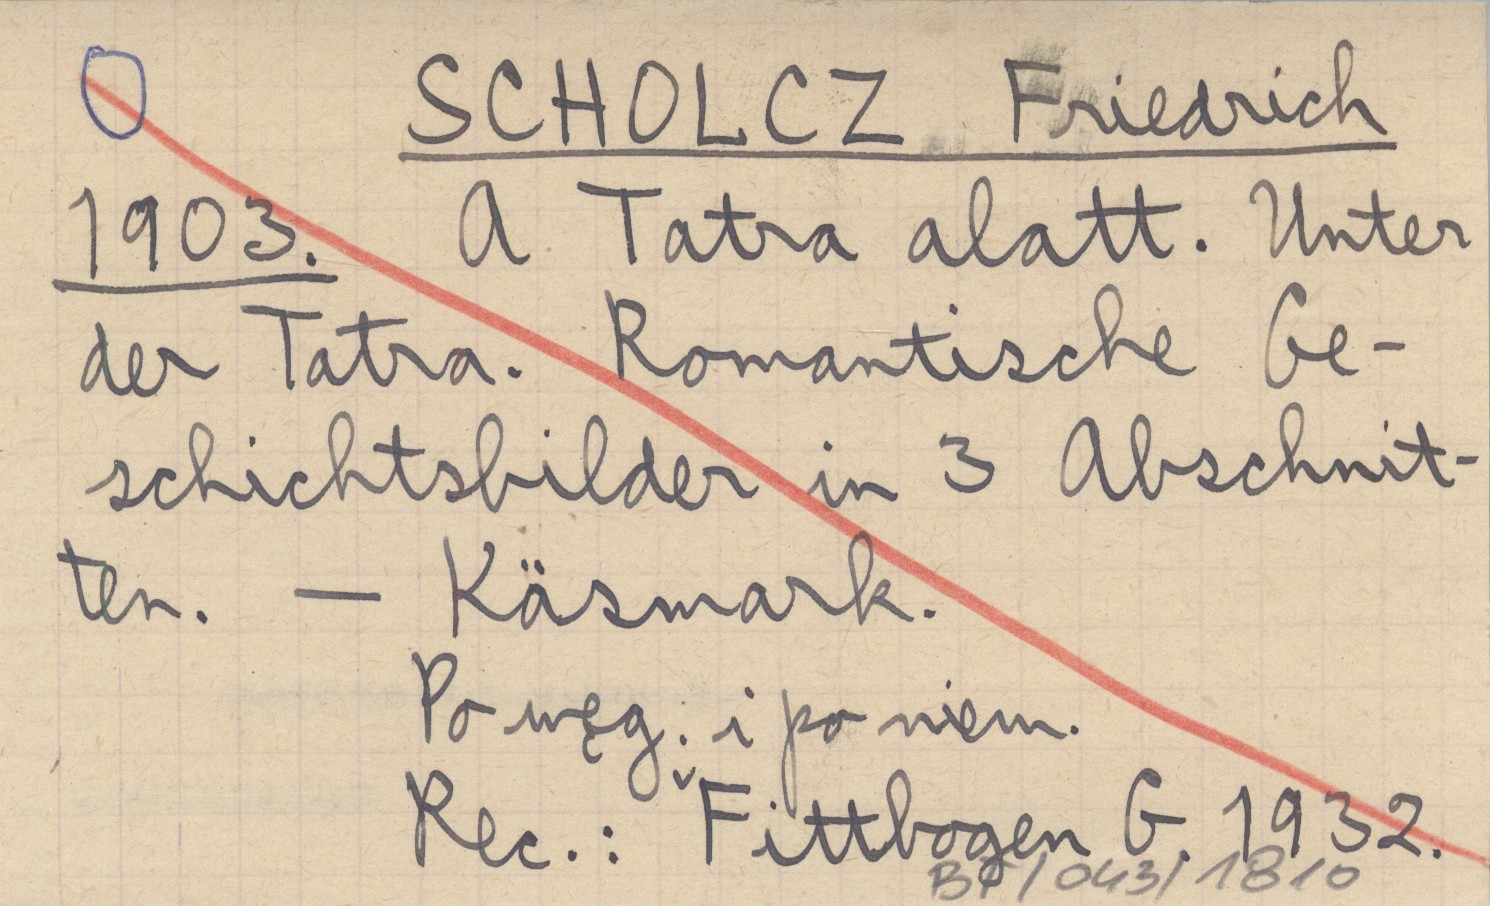 SCHOLCZ Friedrich
1903. A Tatra alatt. Unter
der Tatra. Romantische Ge-
schichtsbilder in 3 Abschnit-
ten. — Käsmark.
Po węg. i po niem.
Rec.: Fittbogen G. 1932.